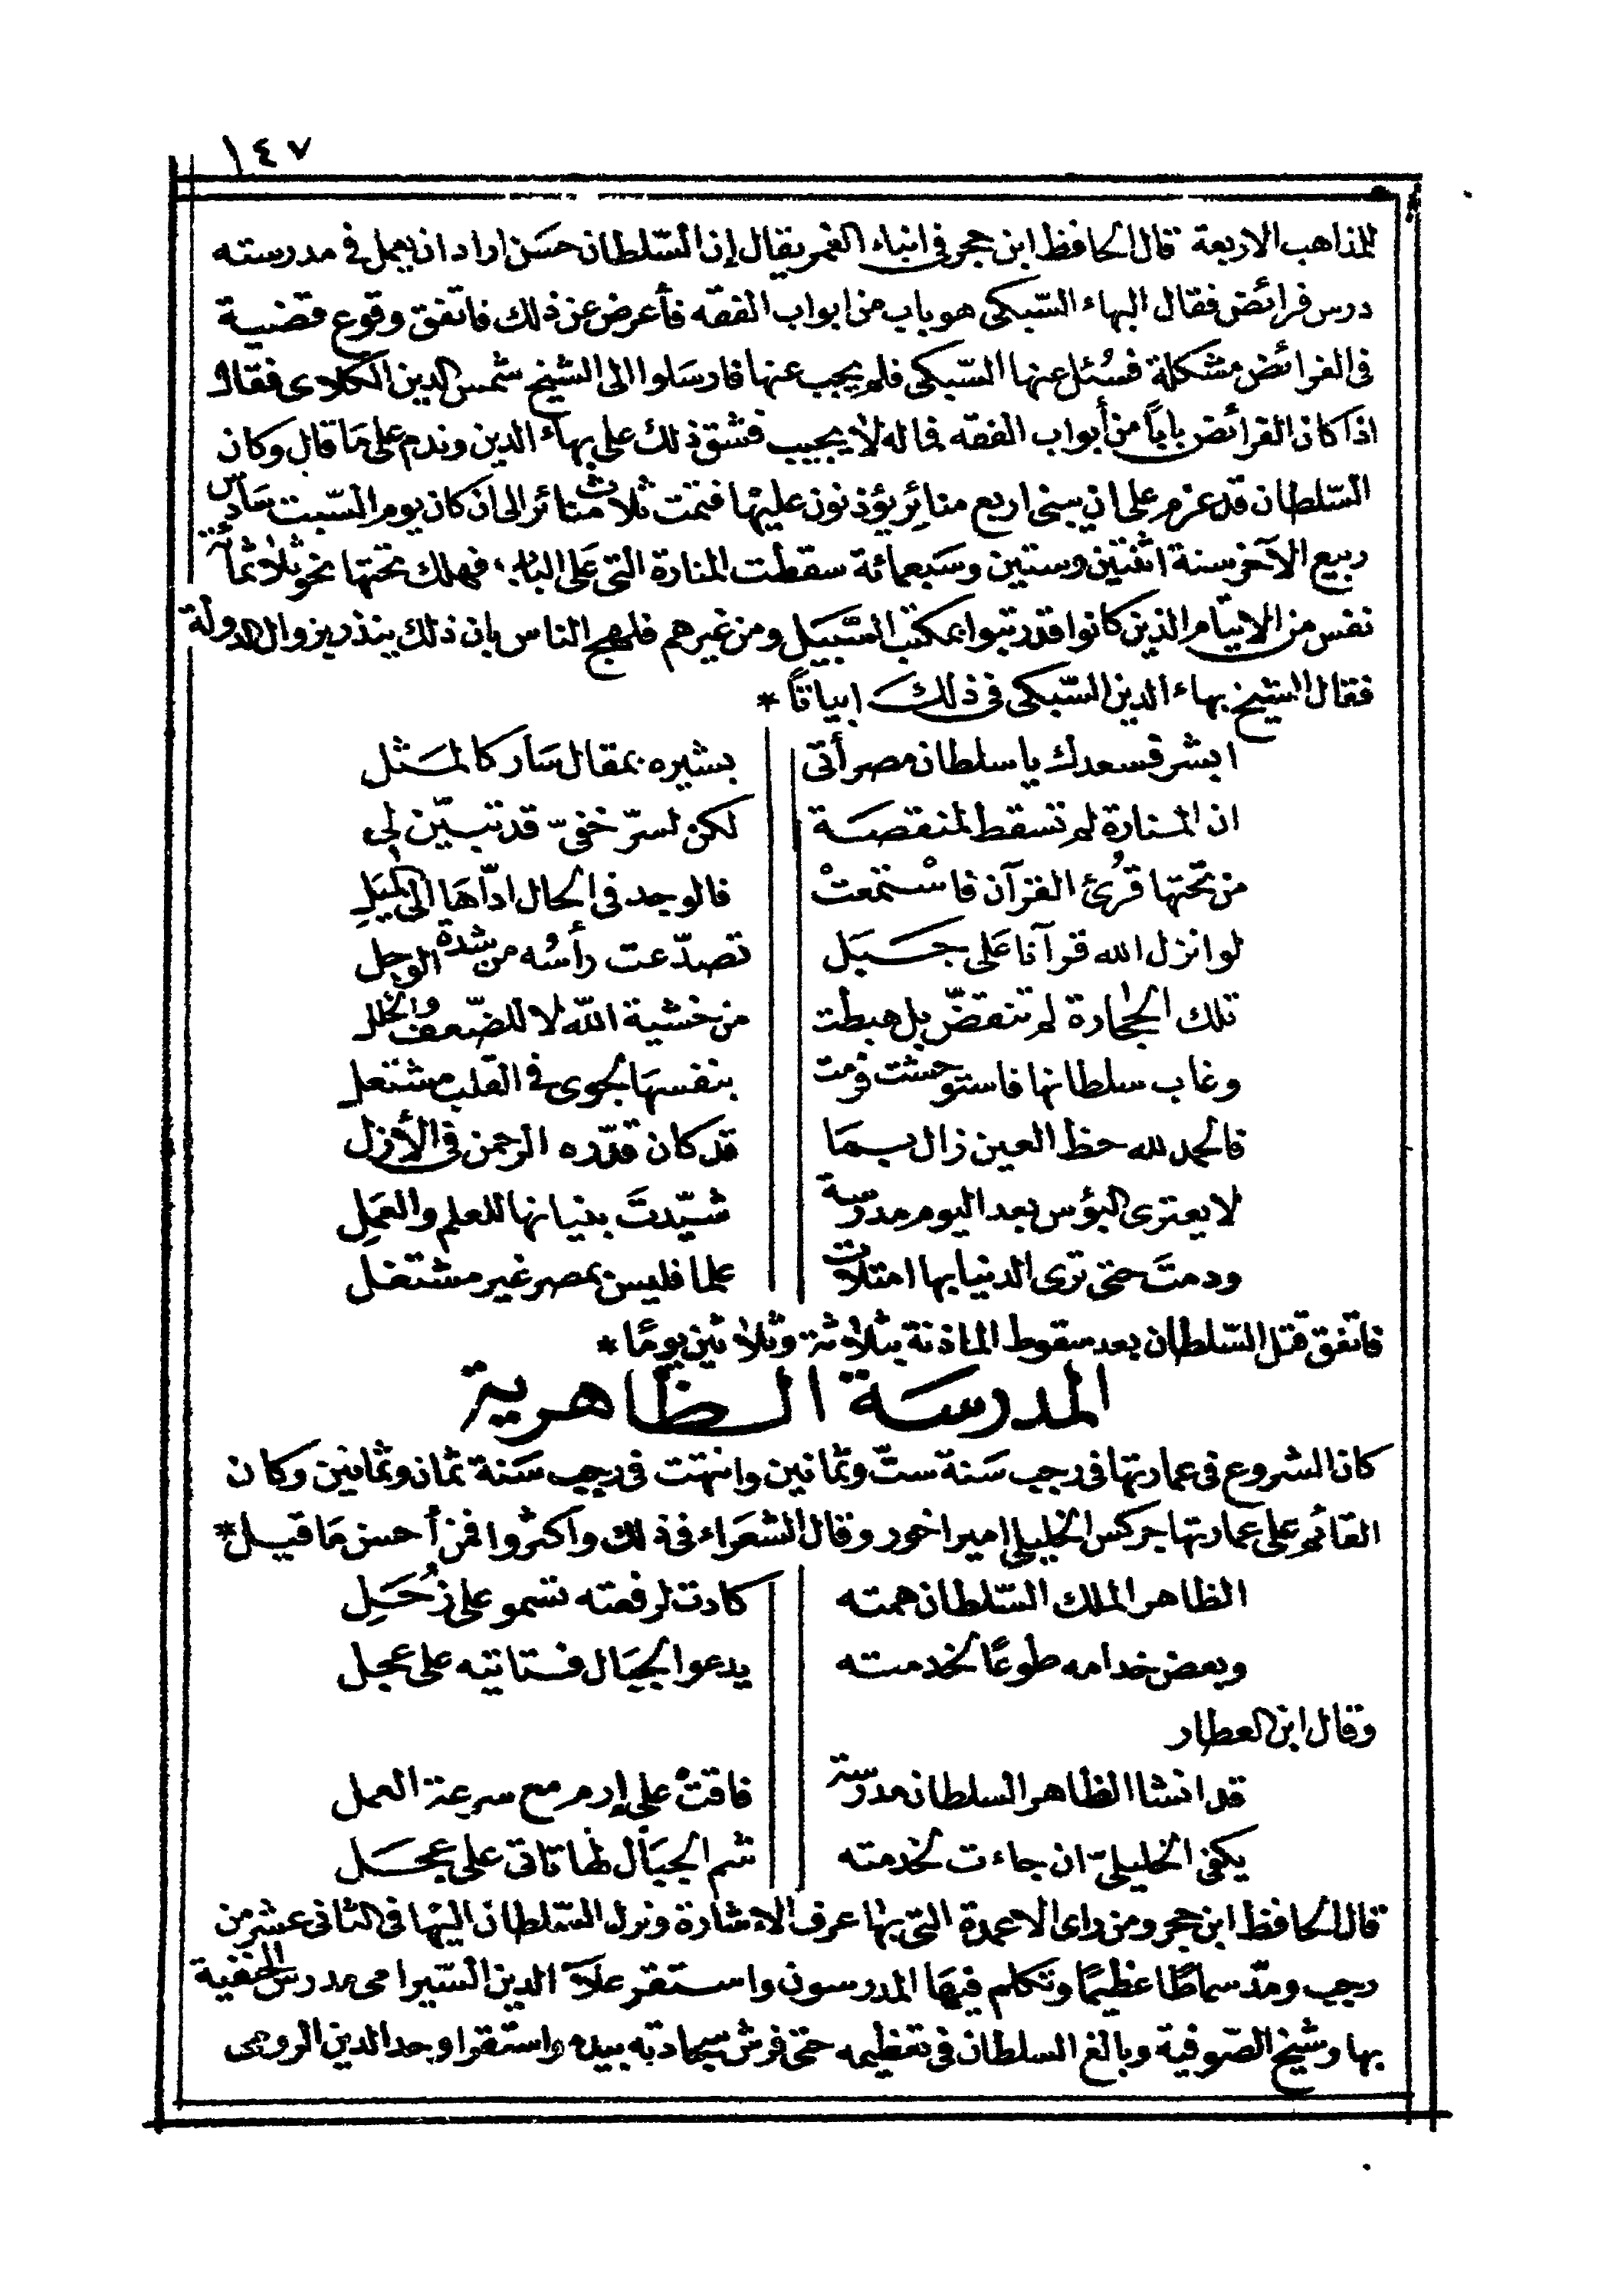 ١٤٧
للمذاهب الاربعة قال الحافظ ابن حجر فى انباء الغمر يقال إن السّلطان حسَن اراد ان يعمل فى مدرسته
درس فرائض فقال البهاء السّبكى هو باب من ابواب الفقه فأعرض عن ذلك فاتفق وقوع قضية
فى الفرائض مشكلة فسُئل عنها السّبكى فلم يجب عنها فارسَلوا الى الشيخ شمس الدين الكلاى فقال
اذا كان الفرائض باباً من أبواب الفقه فما له لا يجيب فشق ذلك على بهاء الدين وندم على مَا قال وكان
السّلطان قد عزم على ان يبنى اربع منائر يؤذنون عليهَا فتمت ثلاث منائر الى ان كان يوم السّبت سَادس
ربيع الآخر سنة اثنتين وستين وسَبعمائة سقطت المنارة التى عَلى الباب فهلك تحتها نحو ثلاثمائة
نفس من الايتام الذين كانوا قد رتبوا بمكتب السَّبيل ومن غيرهم فلهج الناس بان ذلك ينذر بزوال الدولة
فقال الشيخ بهاء الدين السّبكى فى ذلك ابياتاً *
ابشر فسعدك يا سلطان مصر أتى بشيره بمقال سَار كالمَثل
ان المنارة لم تسقط لمنقصَة لكن لسرّ خفىّ قد تبيّن لى
من تحتها قُرئ القرآن فاسْتمعتْ فالوجد فى الحال ادّاهَا الى الميَلِ
لو انزل الله قرآنا عَلى جبَل تصدّعت رأسُه من شدة الوجل
تلك الحجارة لم تنقضّ بل هبطت من خشية الله لا للضّعف والخلل
وغاب سلطانها فاستوحشت فرمت بنفسهَا لجوى فى القلب مشتعل
فالحمد لله حظ العين زال بمَا قد كان قدّره الرحمن فى الأزل
لا يعترى البؤس بعد اليوم مدرسة شيّدتَ بنيانها للعلم والعَمَلِ
ودمتَ حتى ترى الدنيا بها امتلات علما فليس بمصر غير مشتغل
فاتفق قتل السّلطان بعد سقوط الماذنة بثلاثة وثلاثين يومًا *
المدرسَة الظاهرية
كان الشروع فى عمارتها فى رجب سَنة ستّ وثمانين وانتهت فى رجب سَنة ثمان وثمانين وكان
القائم على عمارتها جركس الخليلى امير اخور وقال الشعَراء فى ذلك واكثروا فمن أحسن مَا قيل *
الظاهر الملك السّلطان همته كادت لرفعته تسمو على زُحَلِ
وبعض خدامه طوعًا لخدمته يدعو الجبَال فتاتيه على عجل
وقال ابن العطار
قد انشا الظاهر السلطان مدرسة فاقتْ على إرم مع سرعة العمل
يكفى الخليلىّ ان جاءت لخدمته شم الجبَال لها تاتى على عجَل
قال الحافظ ابن حجر ومن راى الاعمدة التى بها عرف الاشارة ونزل السّلطان اليهَا فى الثانى عشر من
رجب ومدّ سماطًا عظيمًا وتكلم فيهَا المدرسون واستقر علاَء الدين السّيرامى مدرس الحنفية
بها وشيخ الصّوفية وبالغ السلطان فى تعظيمه حتى فرش سجادته بيده واستقر اوحد الدين الرومى